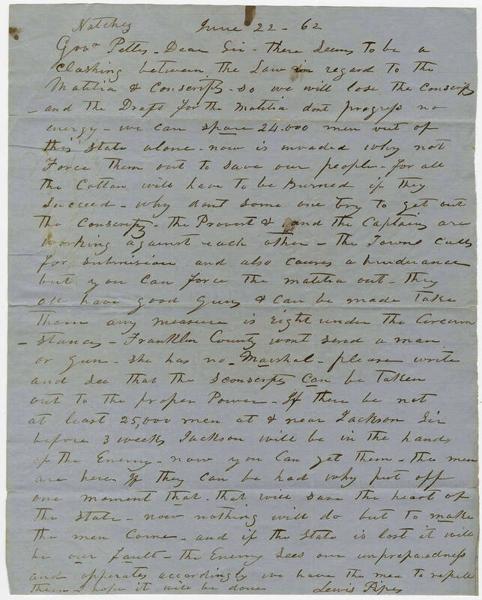 Natchez June 22 - 62
Govr Pettus - Dear Sir - there Seems to be a
Clashing between the Law in regard to the
Malitia & Conscrpts - so we will lose the Conscrpts
- and the Draft for the Malitia dont progress no
energy - we can spare 24.000 men out of
this State alone - now is invaded why not
Force them out to save our people - for all
the Cotton will have to be Burned if they
Succeed - why dont some one try to get out
the Conscrpts - the Provost & and the Captains are
working against each other - the Towns Calls
for submission and also causes a hinderance
but you Can force the malitia out - they
all have good Guns & Can be made take
them any measure is right under the Circum
- stances - Franklin County wont send a man
or Gun - she has no - Marshal - please write
and see that the Sconscrpts Can be taken
out to the proper Power - If there be not
at least 25,000 men at & near Jackson Sir
before 3 weeks Jackson will be in the hands
of the Enemy - now you Can get them - the men
are here, If they can be had why put off
one moment that - that will save the heart of
the State - now nothing will do but to make
the men Come - and if the State is lost it will
be our Fault - the Enemy Sees our unpreparedness
and opperates accordingly we have the men to repell
them - hope it will be done Lewis Pipes